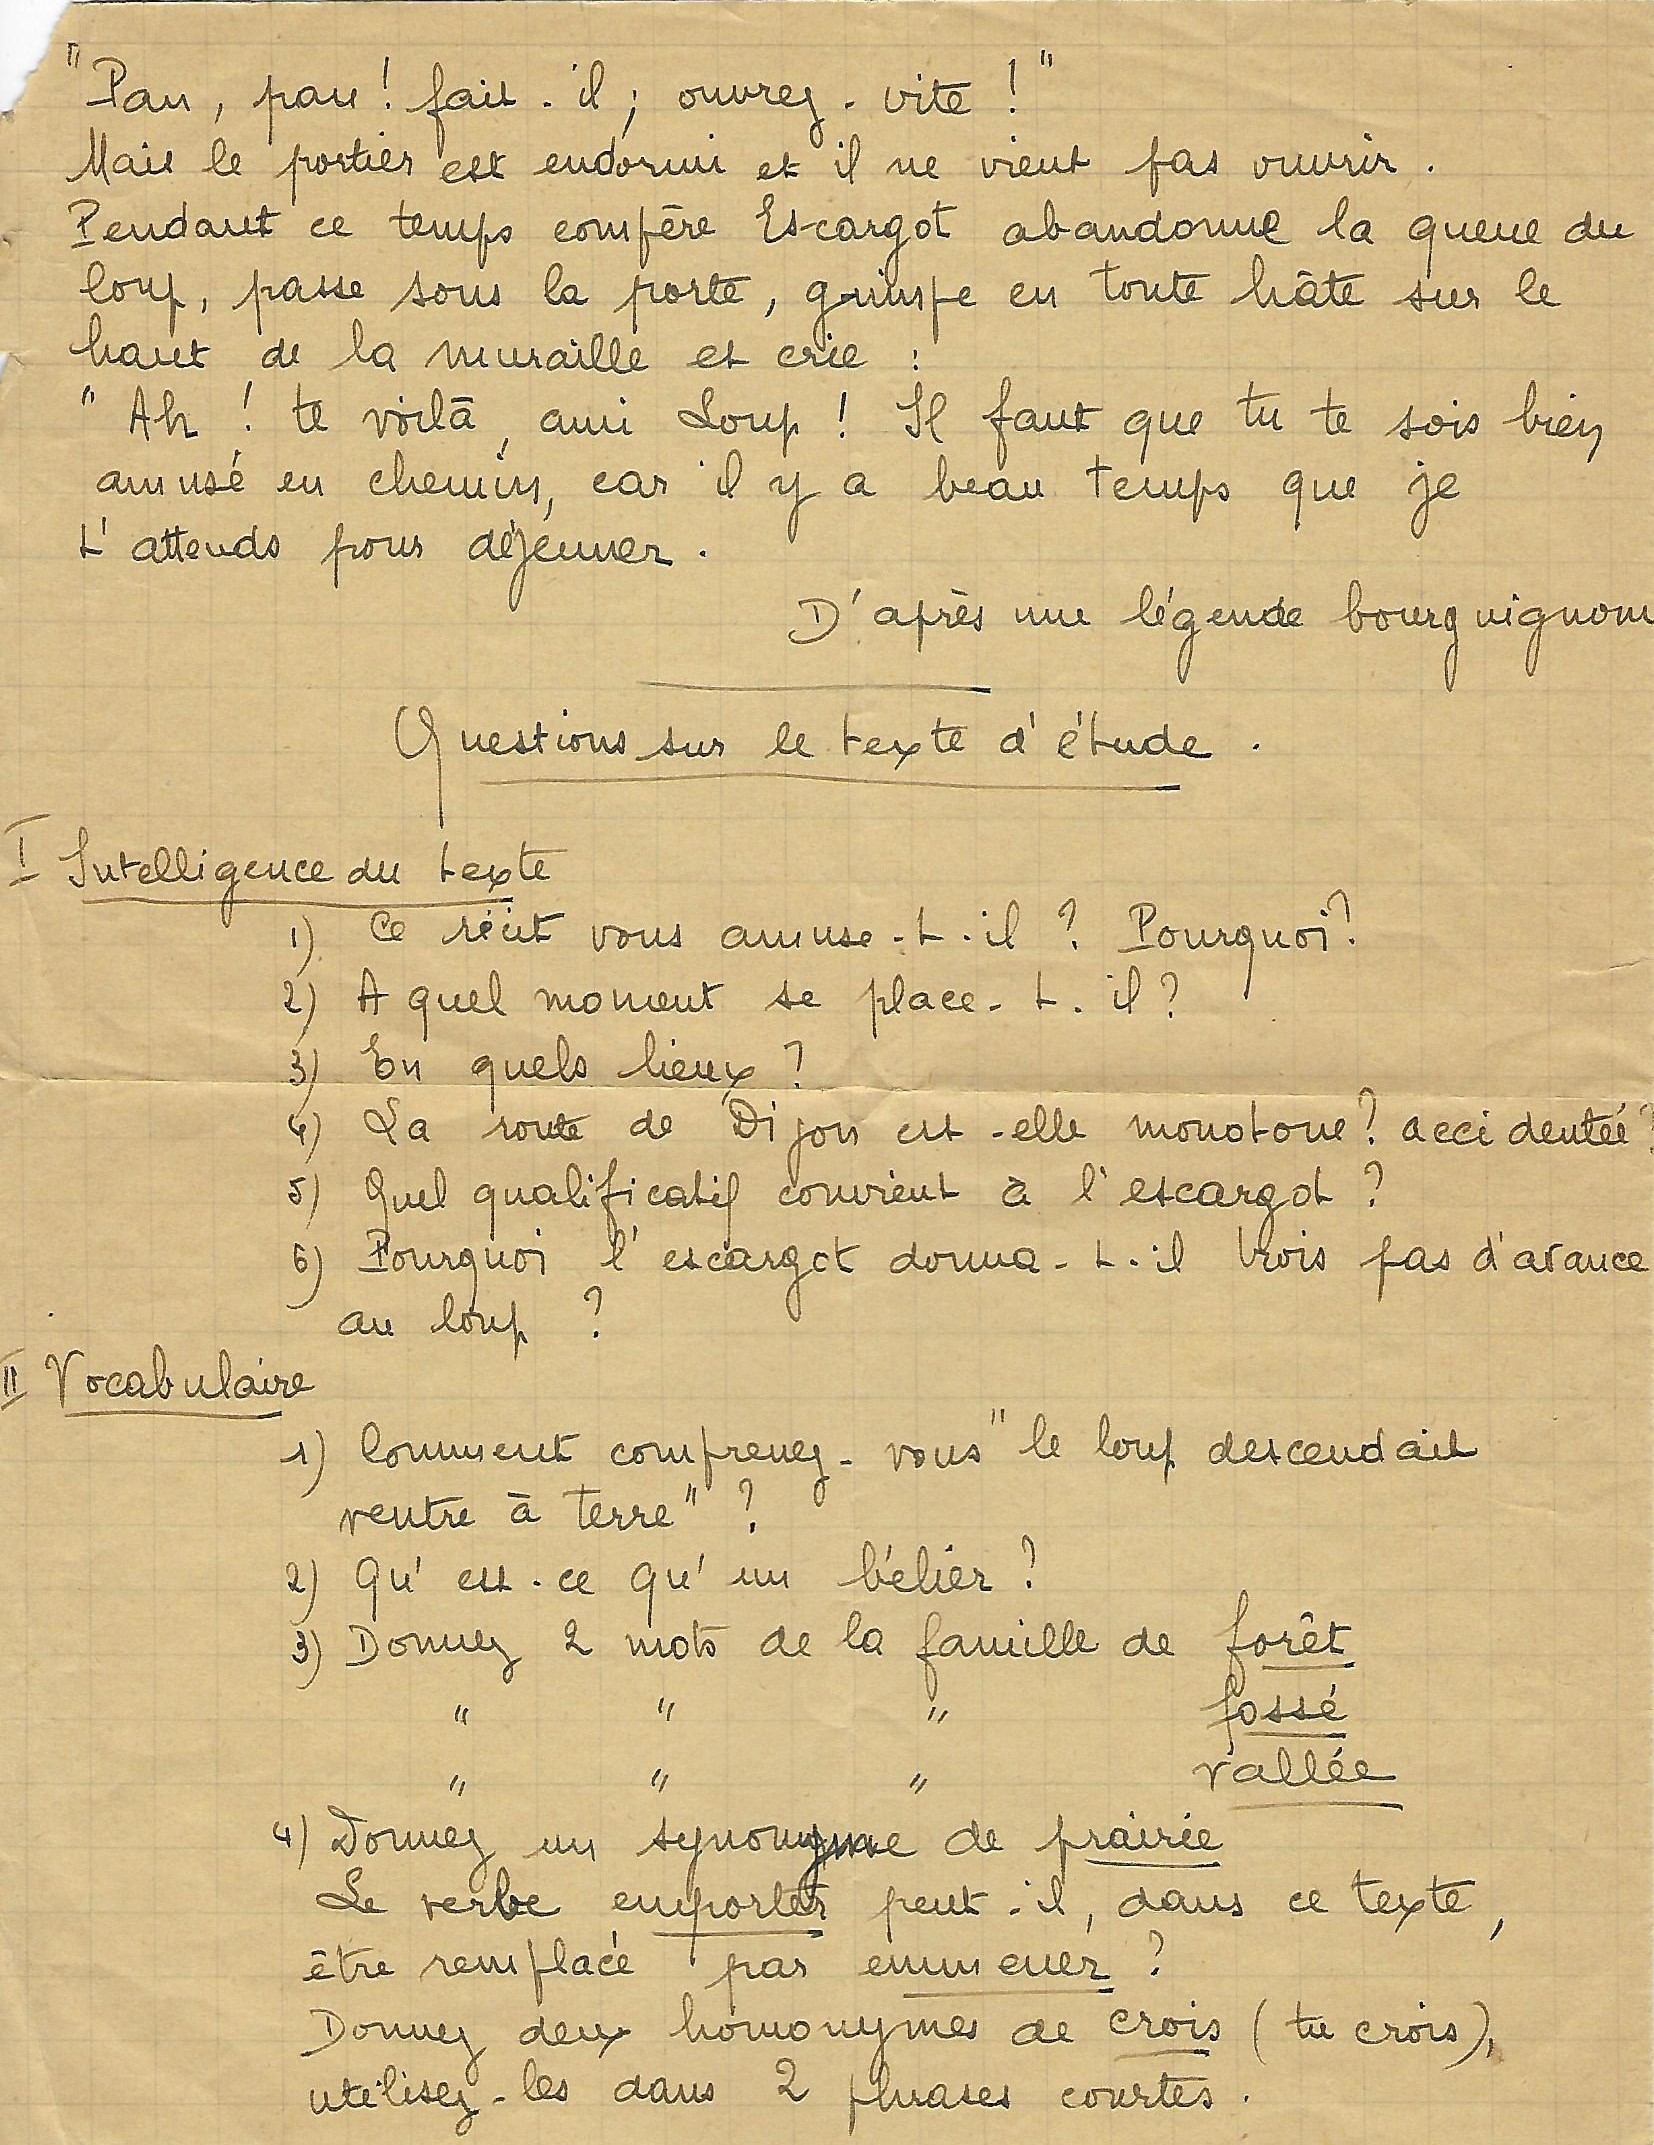 "Pan, pan ! fait-il ; ouvrez-vite !"
Mais le portier est endormi et il ne vient pas ouvrir.
Pendant ce temps compère Escargot abandonne la queue du
loup, passe sous la porte, grimpe en toute hâte sur le
haut de la muraille et crie :
" Ah ! te voilà, ami Loup ! Il faut que tu te sois bien
amusé en chemin, car il y a beau temps que je
t'attends pour déjeuner.
D'après une légende bourguignonn
Questions sur le texte d'étude.
I Intelligence du texte
1) Ce récit vous amuse-t-il ? Pourquoi ?
2) A quel moment se place-t-il ?
3) En quels lieux ?
4) La route de Dijon est-elle monotone ? accidentée ?
5) Quel qualificatif convient à l'escargot ?
6) Pourquoi l'escargot donna-t-il trois pas d'avance
au loup ?
II Vocabulaire
1) Comment comprenez-vous "le loup descendait
ventre à terre" ?
2) Qu'est-ce qu'un bélier ?
3) Donnez 2 mots de la famille de forêt
" " " fossé
" " " vallée
4) Donnez un synonyme de prairie
Le verbe emporter peut-il, dans ce texte,
être remplacé par emmener ?
Donnez deux homonymes de crois (tu crois),
utilisez-les dans 2 phrases courtes.